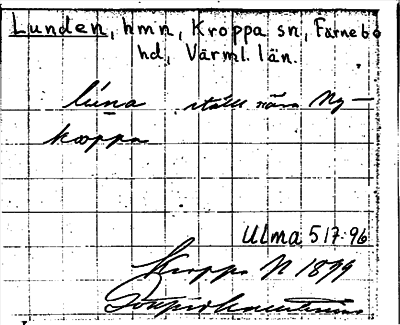 Lunden, hmn, Kroppa sn, Färnebo
hd, Värml. län.
lúna ställ nära Ny-
kroppa
Ulma 517:96
Kroppa N 1899